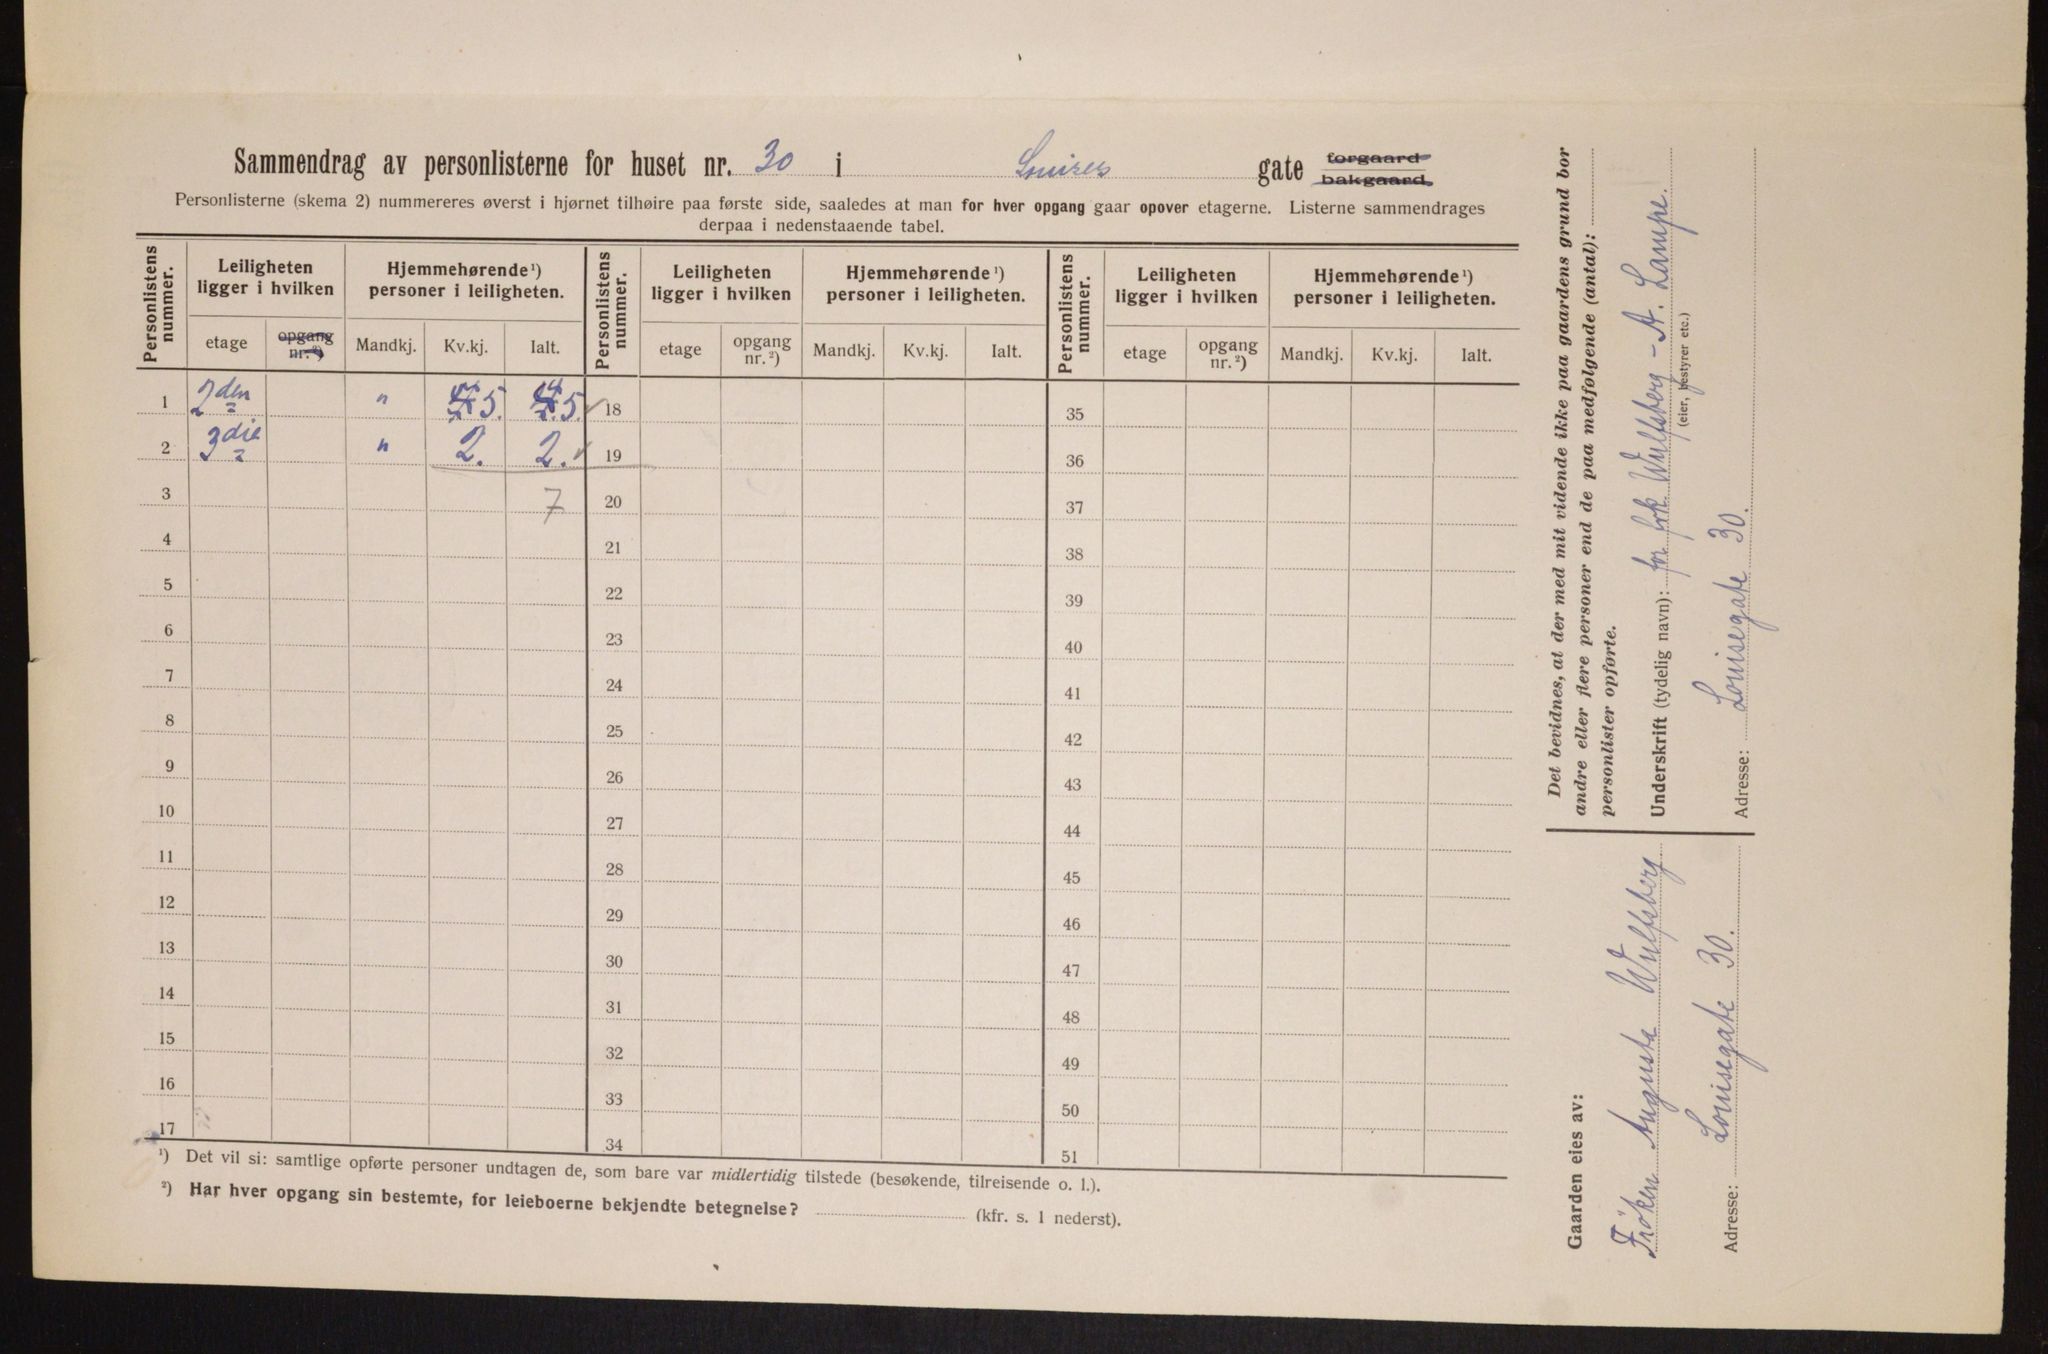 Sammendrag av personlisterne for huset nr. 30 i Louises gate forgaard bakgaard.
Personlisterne (skema 2) nummereres øverst i hjørnet tilhøire paa første side, saaledes at man for hver opgang gaar opover etagerne. Listerne sammendrages
derpaa i nedenstaaende tabel.
Personlistens nummer. Leiligheten ligger i hvilken Hjemmehørende ¹) personer i leiligheten. Personlistens nummer. Leiligheten ligger i hvilken Hjemmehørende ¹) personer i leiligheten. Personlistens nummer. Leiligheten ligger i hvilken Hjemmehørende ¹) personer i leiligheten.
etage opgang nr. ²) Mandkj. Kv.kj. Ialt. etage opgang nr. ²) Mandkj. Kv.kj. Ialt. etage opgang nr. ²) Mandkj. Kv.kj. Ialt.
1 2den " 5. 5. 18 35
2 3die " 2. 2. 19 36
3 7 20 37
4 21 38
5 22 39
6 23 40
7 24 41
8 25 42
9 26 43
10 27 44
11 28 45
12 29 46
13 30 47
14 31 48
15 32 49
16 33 50
17 34 51
¹) Det vil si: samtlige opførte personer undtagen de, som bare var midlertidig tilstede (besøkende, tilreisende o. l.).
²) Har hver opgang sin bestemte, for leieboerne bekjendte betegnelse? (kfr. s. 1 nederst).
Det bevidnes, at der med mit vidende ikke paa gaardens grund bor
andre eller flere personer end de paa medfølgende (antal):
personlister opførte.
Underskrift (tydelig navn): for frk Wulfsberg - A. Lampe.
(eier, bestyrer etc.)
Adresse: Louisegate 30.
Gaarden eies av:
Frøken Augusta Wulfsberg
Adresse: Louisegate 30.